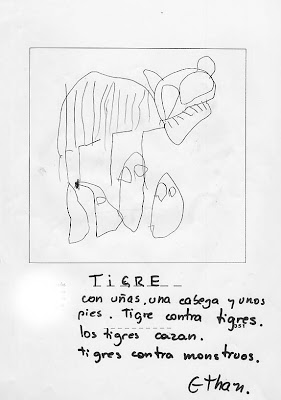 TiGRE
con uñas, una cabeza y unos
pies. Tigre contra tigres.
los tigres cazan.
tigres contra monstruos.
EThan.